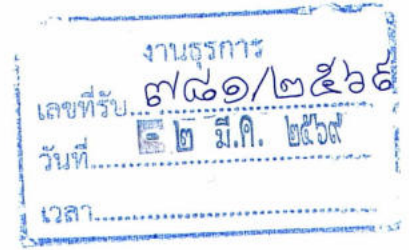 งานธุรการ
เลขที่รับ ๗๘๑/๒๕๖๙
วันที่ ๒ มี.ค. ๒๕๖๙
เวลา